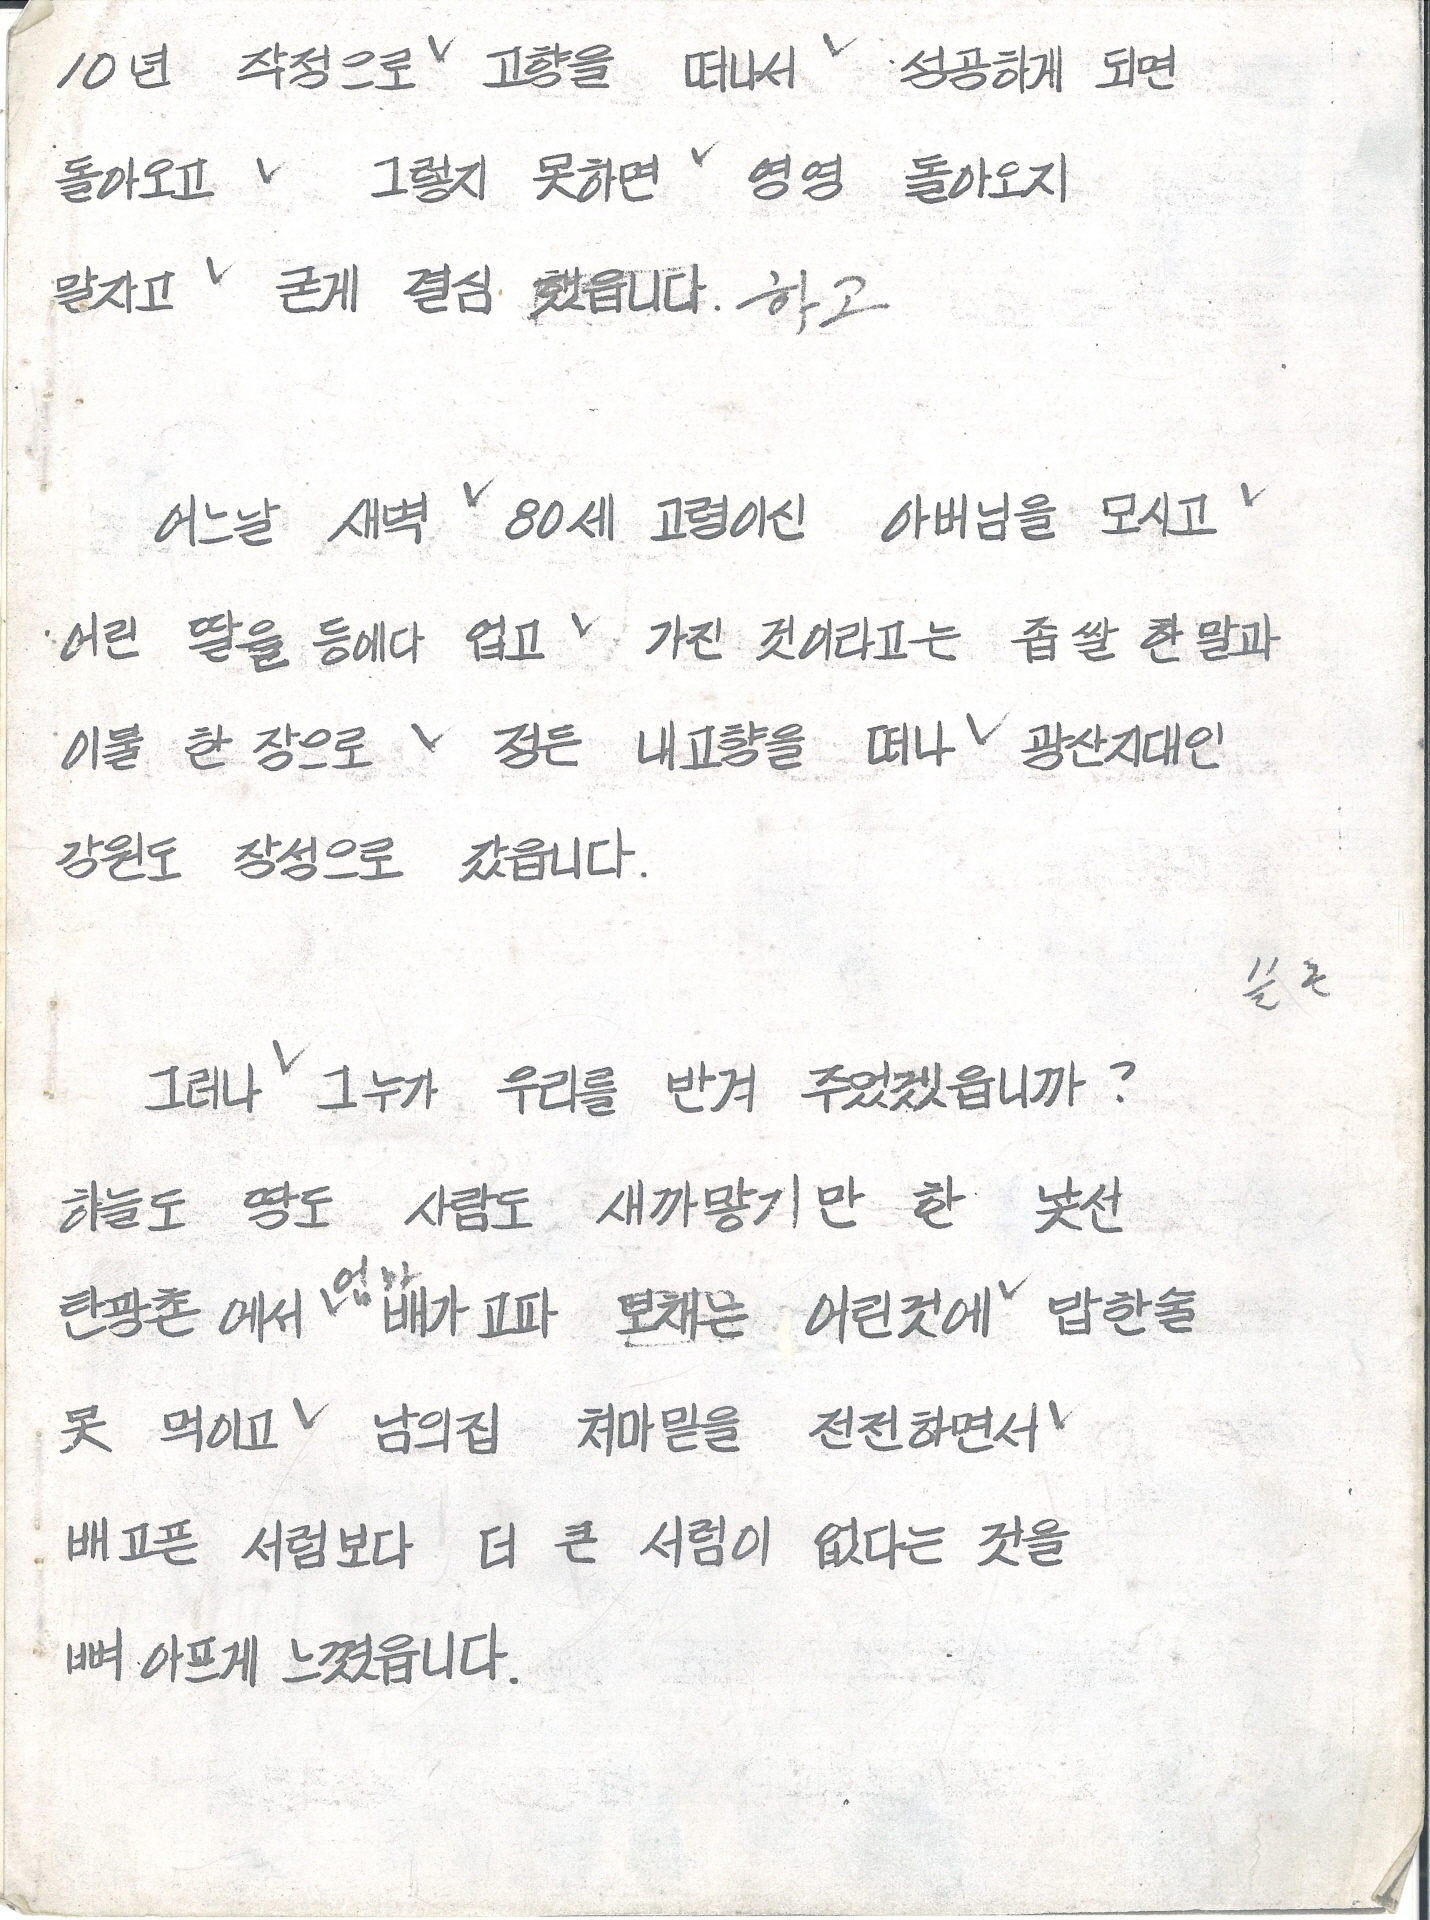 10년 작정으로√ 고향을 떠나서√ 성공하게 되면
돌아오고 √ 그렇지 못하면√ 영영 돌아오지
말자고√ 굳게 결심 했읍니다. 하고
어느날 새벽√ 80세 고령이신 아버님을 모시고√
어린 딸을 등에다 업고√ 가진 것이라고는 좁쌀 한말과
이불 한 장으로 √ 정든 내고향을 떠나√ 광산지대인
강원도 장성으로 갔읍니다.
그러나√ 그누가 우리를 반겨 주었겠읍니까?
하늘도 땅도 사람도 새까맣기만 한 낯선
탄광촌에서√ 엄마 배가 고파 보채는 어린것에√ 밥한술
못 먹이고√ 남의집 처마밑을 전전하면서√
배고픈 서럼보다 더 큰 서럼이 없다는 것을
뼈 아프게 느꼈읍니다.